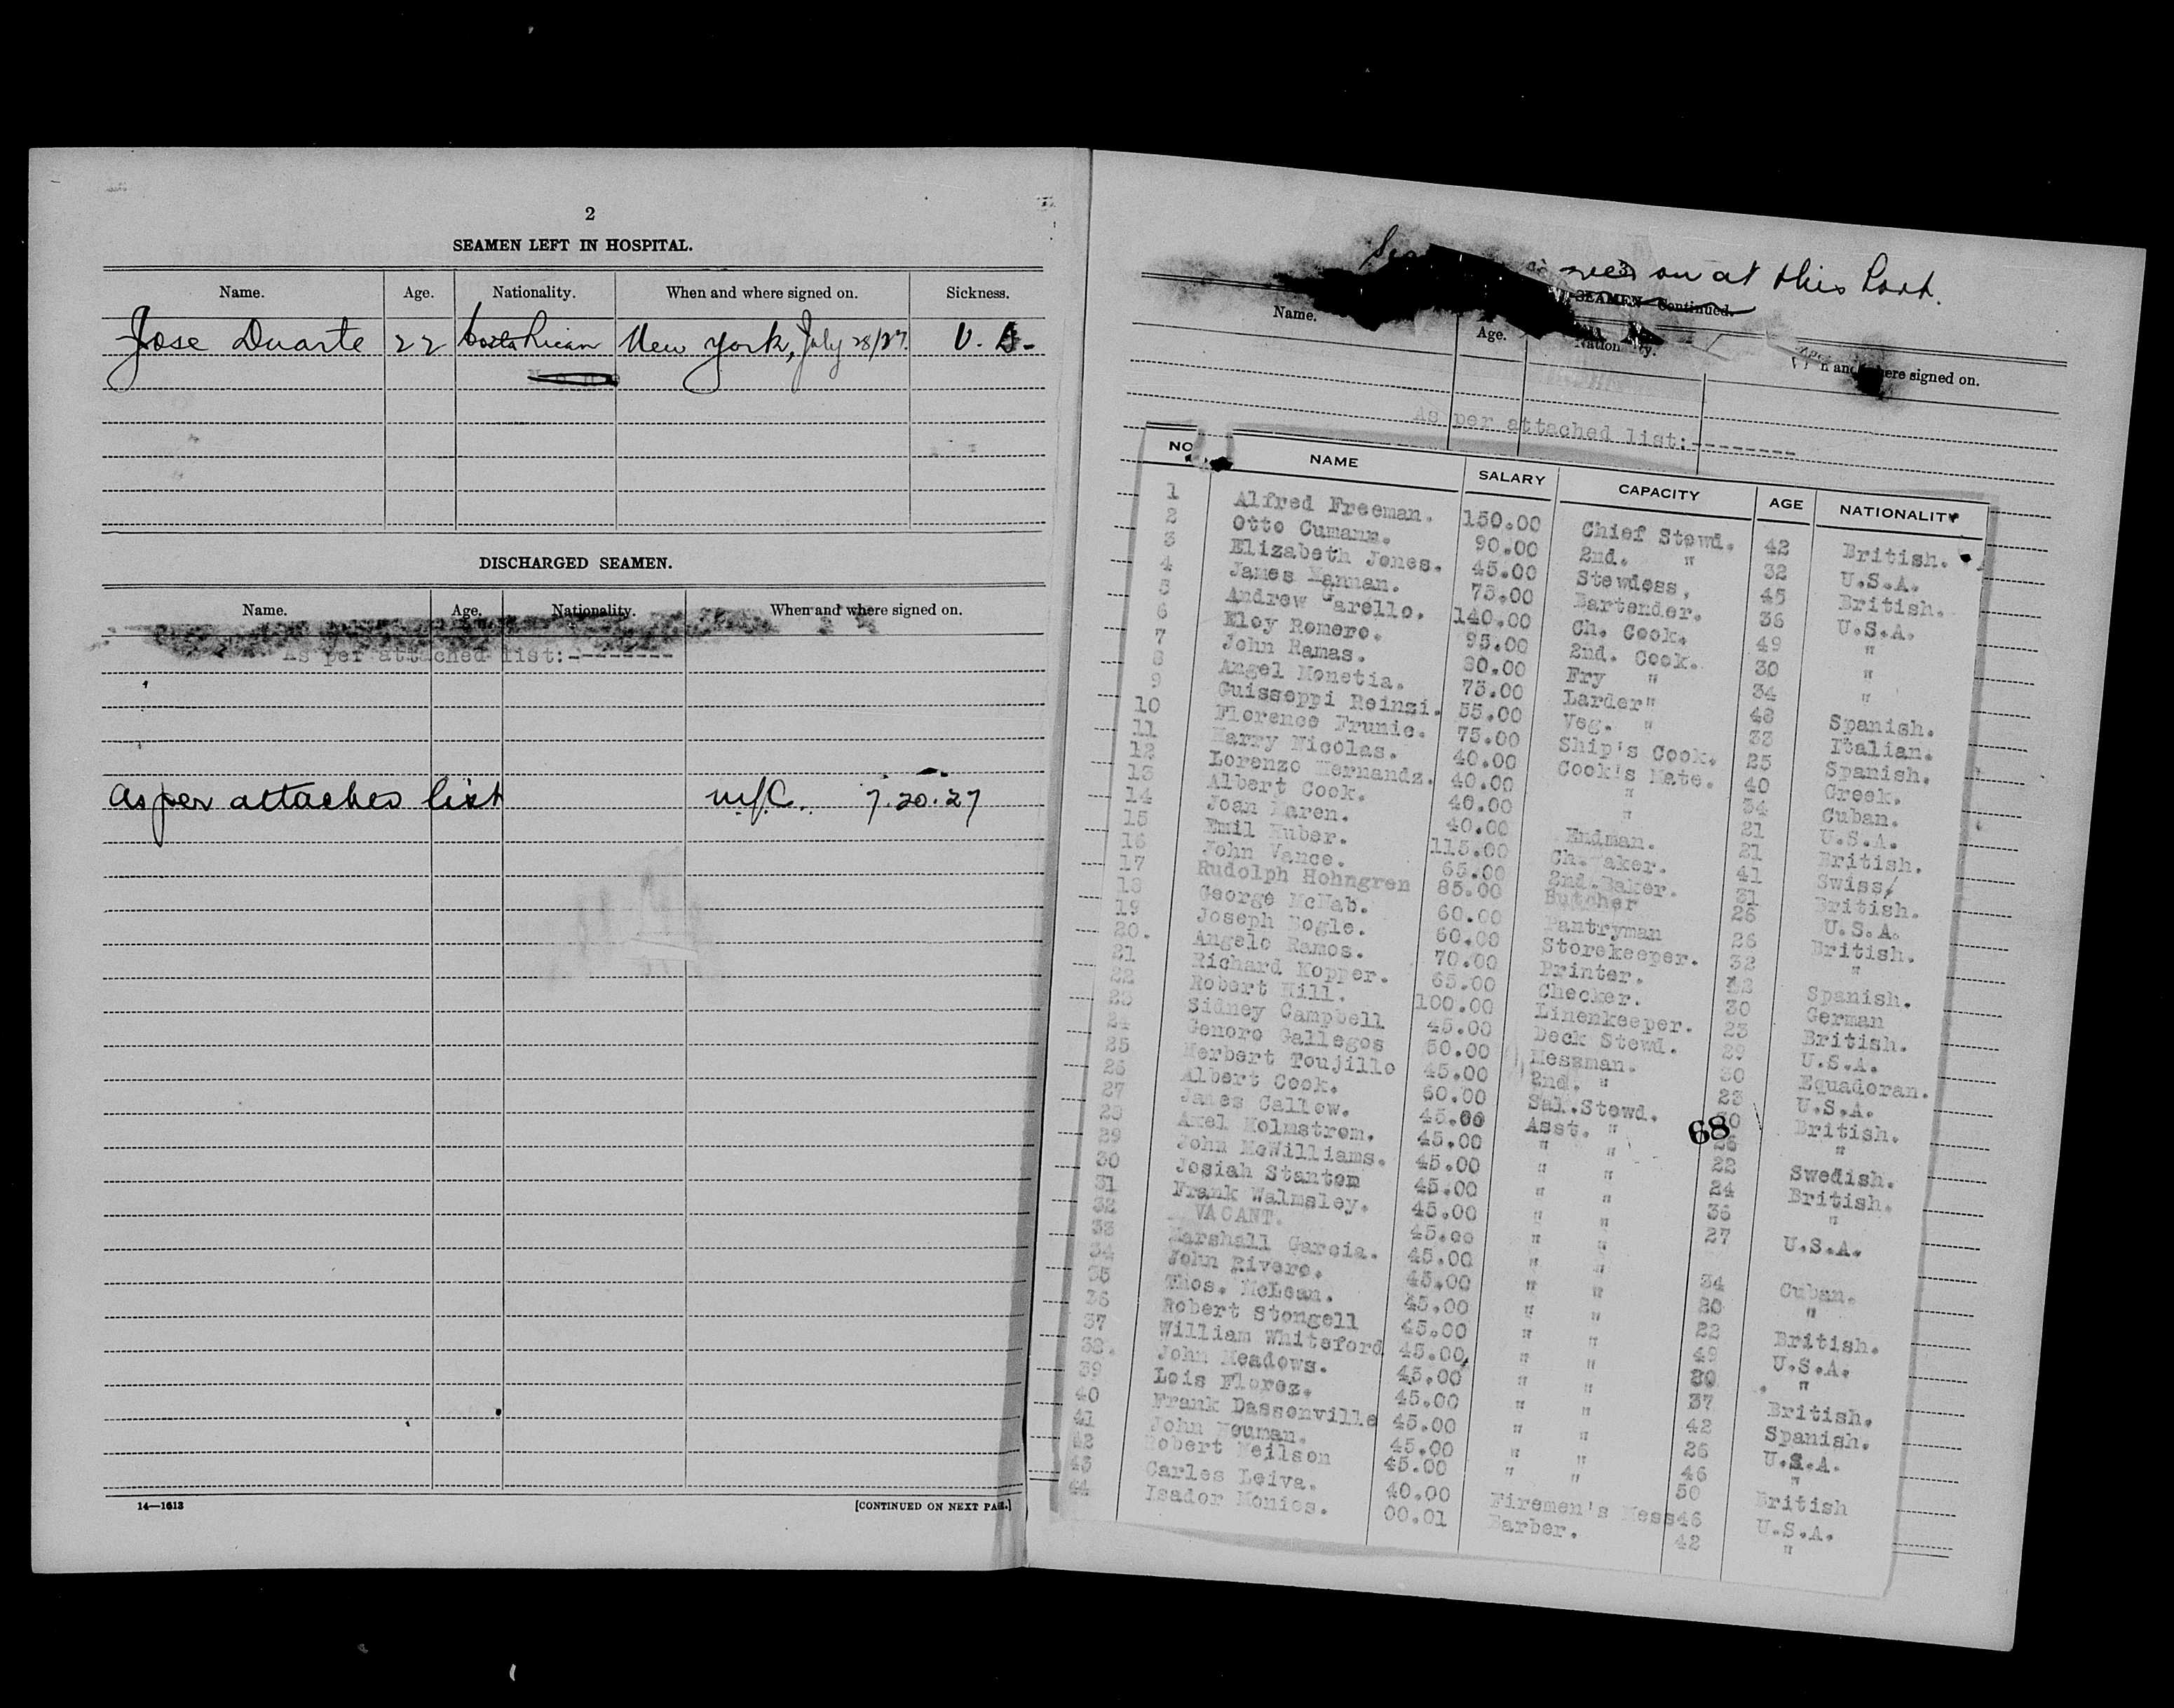 2
SEAMEN LEFT IN HOSPITAL.
Name. Age. Nationality. When and where signed on. Sickness.
Jose Duarte 22 Costa Rican New York, July 28/27. V. D-
None
DISCHARGED SEAMEN.
Name. Age. Nationality. When and where signed on.
As per attached list:--------
As per attached list 7.20.27
14—1613 [CONTINUED ON NEXT PAGE.]
on at this Port.
3
SEAMEN—Continued.
Name. Age. Nationality. When and where signed on.
As per attached list:---------
NO. NAME SALARY CAPACITY AGE NATIONALITY
1 Alfred Freeman. 150.00 Chief Stewd. 42 British.
2 Otto Cumann. 90.00 2nd. " 32 U.S.A.
3 Elizabeth Jones. 45.00 Stewdess, 45 British.
4 James Mannan. 75.00 Bartender. 36 U.S.A.
5 Andrew Garello. 140.00 Ch. Cook. 49 "
6 Eloy Romero. 95.00 2nd. Cook. 30 "
7 John Ramas. 80.00 Fry " 34 "
8 Angel Monetia. 75.00 Larder" 48 Spanish.
9 Guisseppi Reinzi. 55.00 Veg. " 33 Italian.
10 Florence Frunic. 75.00 Ship's Cook. 25 Spanish.
11 Harry Nicolas. 40.00 Cook's Mate. 40 Greek.
12 Lorenzo Hernandz. 40.00 " 34 Cuban.
13 Albert Cook. 40.00 " 21 U.S.A.
14 Joan Maren. 40.00 Endman. 21 British.
15 Emil Huber. 115.00 Ch.Baker. 41 Swiss
16 John Vance. 65.00 2nd.Baker. 31 British.
17 Rudolph Hohngren 85.00 Butcher 26 U.S.A.
18 George McNab. 60.00 Pantryman 26 British.
19 Joseph Bogle. 60.00 Storekeeper. 32 "
20. Angelo Ramos. 70.00 Printer. Spanish.
21 Richard Kopper. 65.00 Checker. 30 German
22 Robert Hill. 100.00 Linenkeeper. 23 British.
23 Sidney Campbell 45.00 Deck Stewd. 29 U.S.A.
24 Genoro Gallegos 50.00 Messman. 30 Equadoran.
25 Herbert Toujillo 45.00 2nd. " 23 U.S.A.
26 Albert Cook. 60.00 Sal.Stewd. British.
27 James Callow. 45.00 Asst. " "
68
28 Axel Holmstrom. 45.00 " " 22 Swedish.
29 John McWilliams. 45.00 " " 24 British.
30 Josiah Stanton 45.00 " " 36 "
31 Frank Walmsley. 45.00 " " 27 U.S.A.
32 VACANT. 45.00 " "
33 Marshall Garcia. 45.00 " " 34 Cuban.
34 John Rivero. 45.00 " " 20 "
35 Thos. McLean. 45.00 " " 22 British.
36 Robert Stongell 45.00 " " 49 U.S.A.
37 William Whiteford 45.00 " " "
38. John Meadows. 45.00 " " 37 British.
39 Lois Florez. 45.00 " " 42 Spanish.
40 Frank Dassonville 45.00 " " 26 U.S.A.
41 John Neuman. 45.00 " " 46 "
42 Robert Neilson 45.00 " " 50 British
43 Carles Leiva. 40.00 Firemen's Mess 46 U.S.A.
44 Isador Monies. 00.01 Barber. 42 "